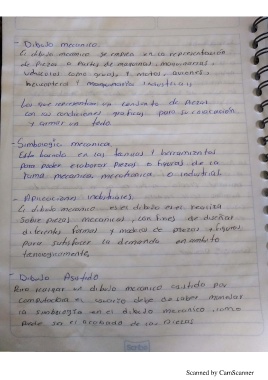 - Dibujo mecanico:
El dibujo mecanico se emplea en la representación
de piezas o partes de maquinas, maquinarias,
vehiculos como gruas, y motos, aviones,
helicoptero y maquinarias industriales,
Los que representan un conjunto de piezas
con sus condiciones graficas para su
y armar un todo
- Simbologia mecanica
Esta basado en las tecnicas y herramientas
para poder elaborar piezas o figuras de la
rama mecanica, microtronica o industrial
- Aplicaciones industriales.
El dibujo mecanico es el dibujo que se realiza
sobre piezas mecanicas, con fines de diseñar
diferentes formas y material de piezas o figuras
para satisfacer la demanda en ambito
tecnologicamente,
- Dibujo Asistido
Para realizar un dibujo mecanico asistido por
computadora el usuario debe de saber manejar
la simbologia en el dibujo mecanico, como
puede ser el acotado de las piezas
Scribe
Scanned by CamScanner